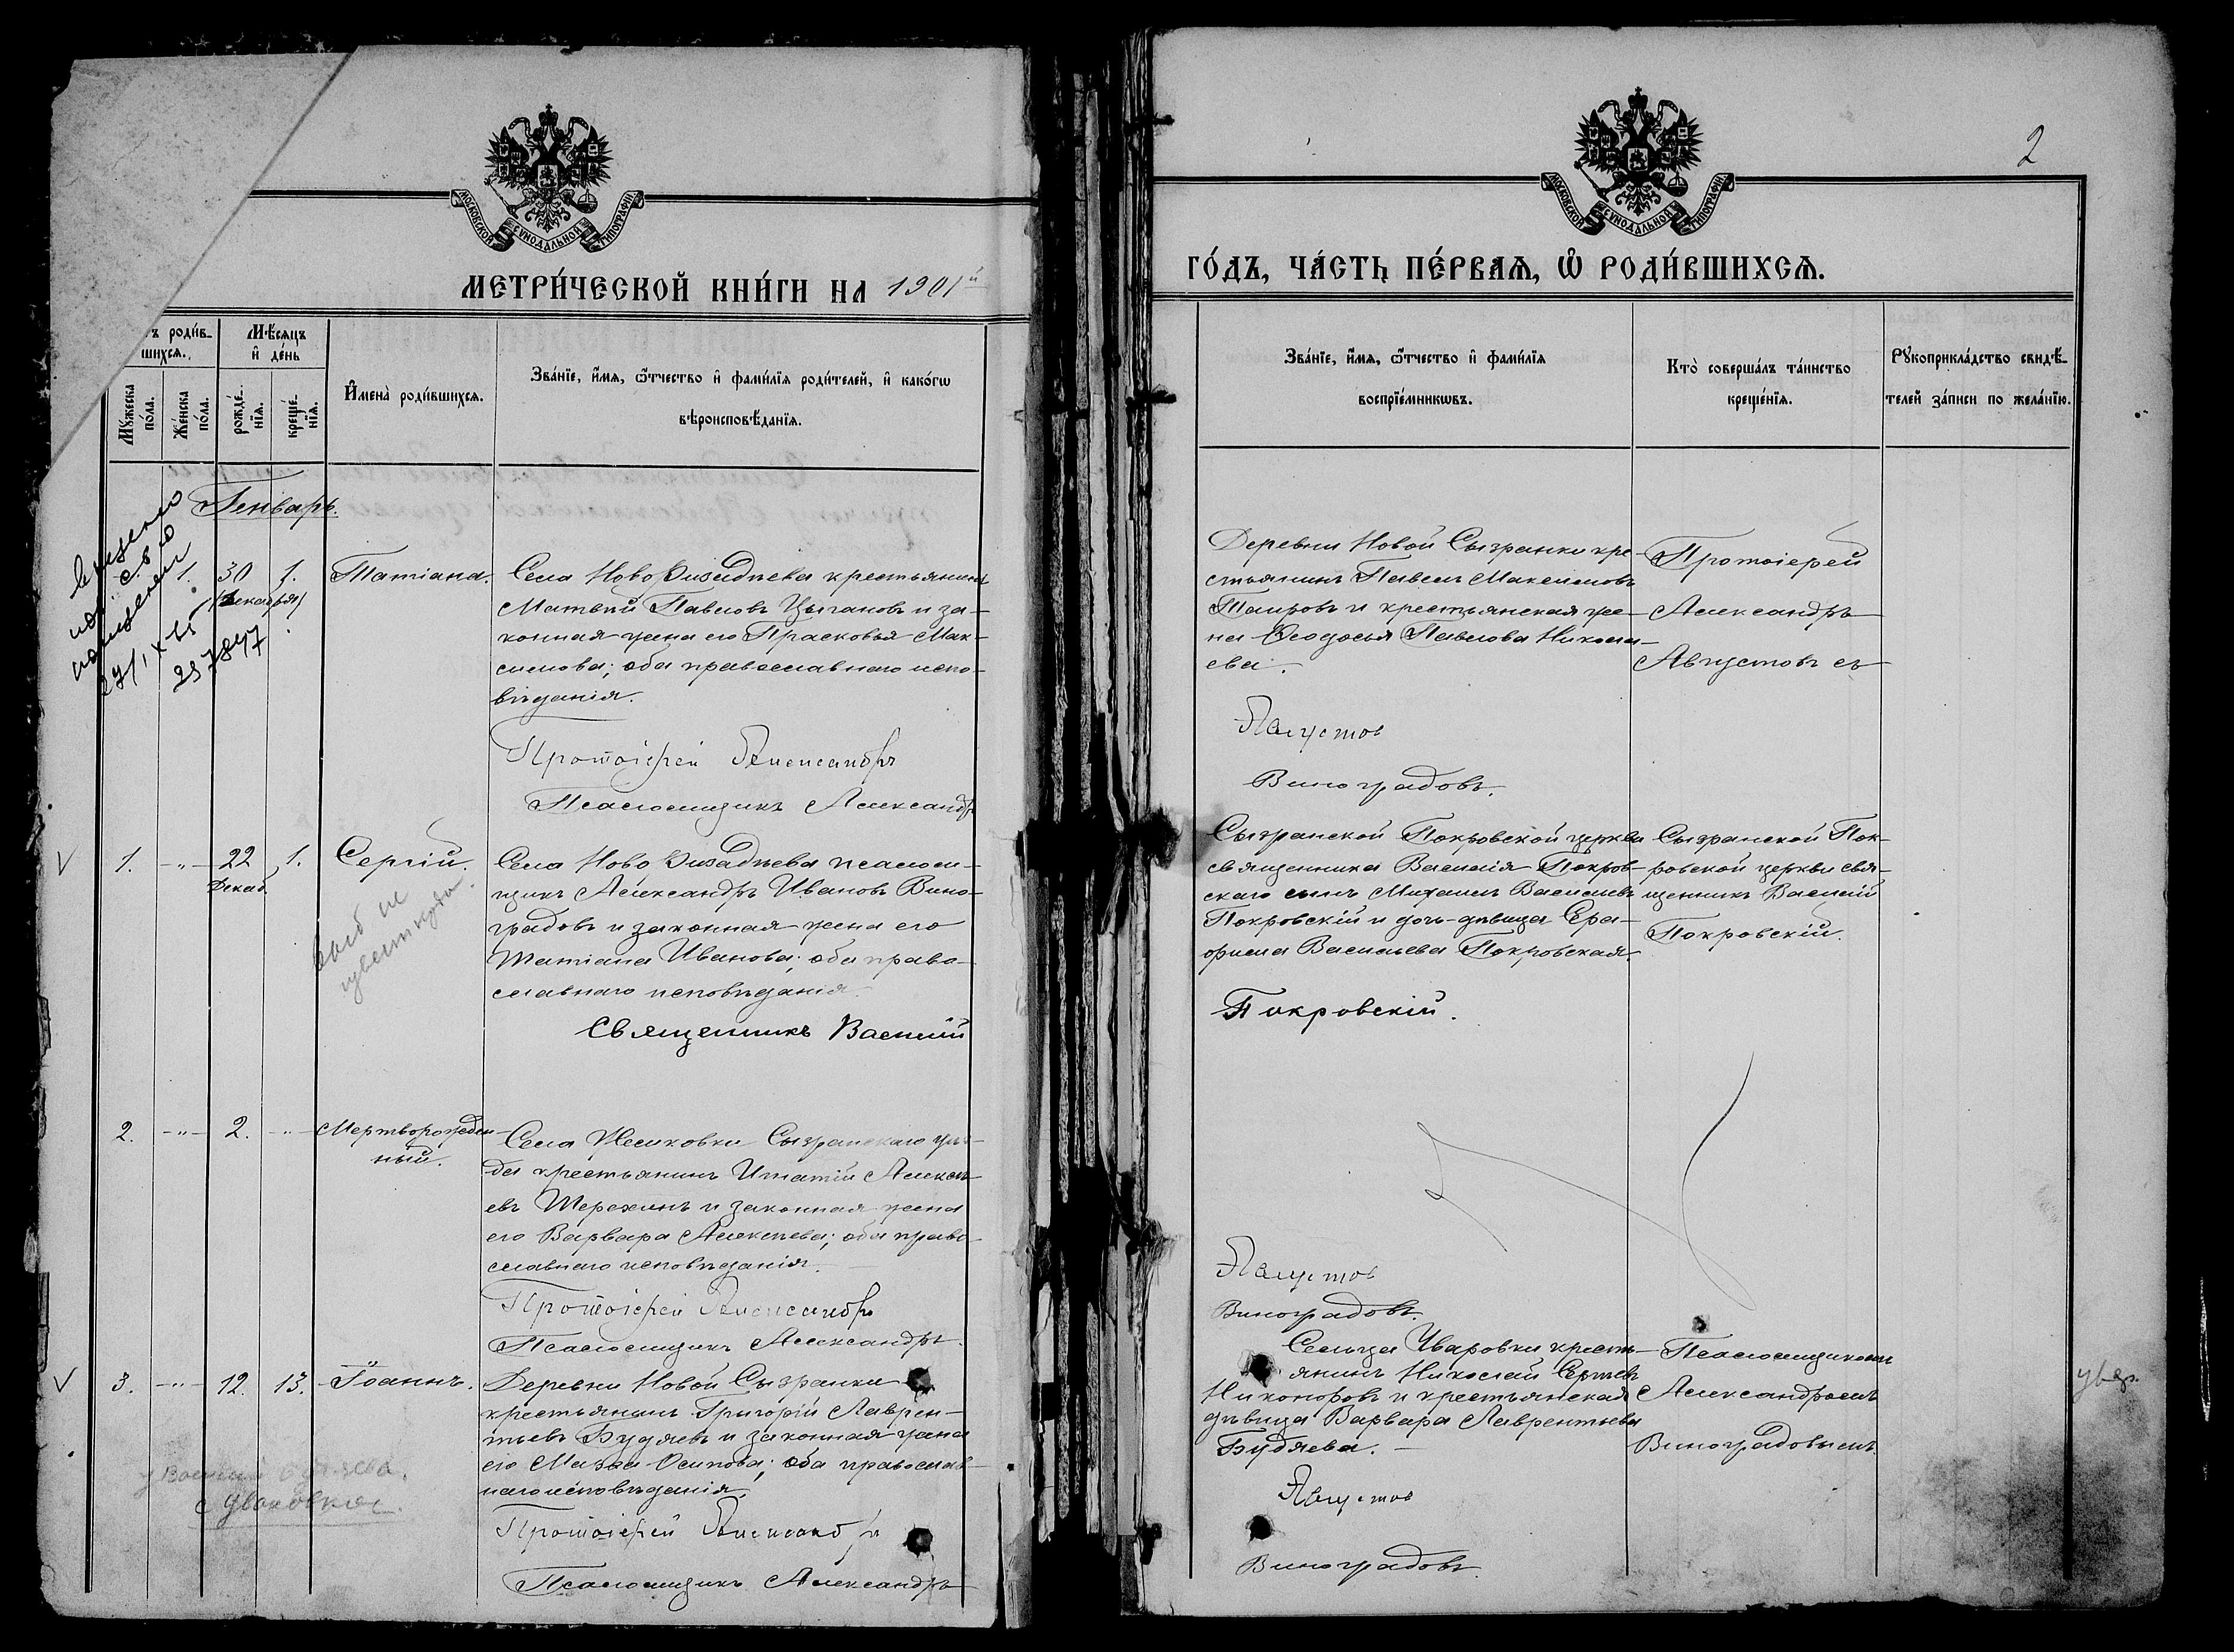 МОСКОВСКОЙ СѴНОДАЛЬНОЙ ТИПОГРАФІИ
МЕТРИ́ЧЕСКОЙ КНИ́ГИ НА 1901й
ъ роди́в-
шихся.
Мѣ́сяцъ
и҆ де́нь
Мꙋ́жеска
по́ла.
Же́нска
по́ла.
рожде́-
нїя.
креще́-
нїя.
И҆мена̀ роди́вшихся.
Зва́нїе, и҆́мя, ѻ҆́тчество и҆ фами́лїя роди́телей, и҆ како́гѡ
вѣроисповѣ́данїя.
Генварь.
1. 30 1. Татіана.
/Декабря/
297847
Села Ново Ризадѣева крестьянинъ
Матвѣй Павловъ Цыгановъ и за-
конная жена его Прасковья Мак-
симова; оба православнаго испо-
вѣданія.
Протоіерей Александръ
Псаломщикъ Александръ
V 1. -"- 22 1. Сергій.
Декаб.
Села Ново Ризадѣева псалом-
щикъ Александръ Ивановъ Вино-
градовъ и законная жена его
Татіана Иванова; оба право-
славнаго исповѣданія.
Священникъ Василій
2. -"- 2. -"- Мертворожден-
ный.
Села Жемковки Сызранскаго уѣз-
да крестьянинъ Игнатій Алексѣ-
евъ Терехинъ и законная жена
его Варвара Алексѣева; оба право-
славнаго исповѣданія.
Протоіерей Александръ
Псаломщикъ Александръ
V 3. -"- 12. 13. Іоаннъ.
Деревни Новой Сызранки
крестьянинъ Григорій Лаврен-
тьевъ Будяевъ и законная жена
его Осипова; оба православ-
наго исповѣданія.
Протоіерей Александръ
Псаломщикъ Александръ
2
МОСКОВСКОЙ СѴНОДАЛЬНОЙ ТИПОГРАФІИ
ГО́ДЪ, ЧА́СТЬ ПЕ́РВАЯ, Ѽ РОДИ́ВШИХСЯ.
Зва́нїе, и҆́мя, ѻ҆́тчество и҆ фами́лїя
воспрїе́мникѡвъ.
Кто̀ соверша́лъ та́инство
креще́нїя.
Рꙋкоприкла́дство свидѣ́-
телей за́писи по жела́нїю.
Деревни Новой Сызранки кре-
стьянинъ Павелъ Максимовъ
Таировъ и крестьянская же-
на Ѳеодосья Павлова Никола-
ева.
Протоіерей
Александръ
Августовъ съ
Августов
Виноградовъ.
Сызранской Покровской церкви
священника Василія Покров-
скаго сынъ Михаилъ Васильевъ
Покровскій и дочь-дѣвица Сера-
фима Васильева Покровская.
Сызранской Пок-
ровской церкви свя-
щенникъ Василій
Покровскій.
Покровскій.
Августов
Виноградовъ.
Сельца Уваровки кресть-
янинъ Николай Сергѣевъ
Никоноровъ и крестьянская
дѣвица Варвара Лаврентьева
Будяева.
Псаломщикомъ
Александромъ
Виноградовымъ.
Августов
Виноградовъ.